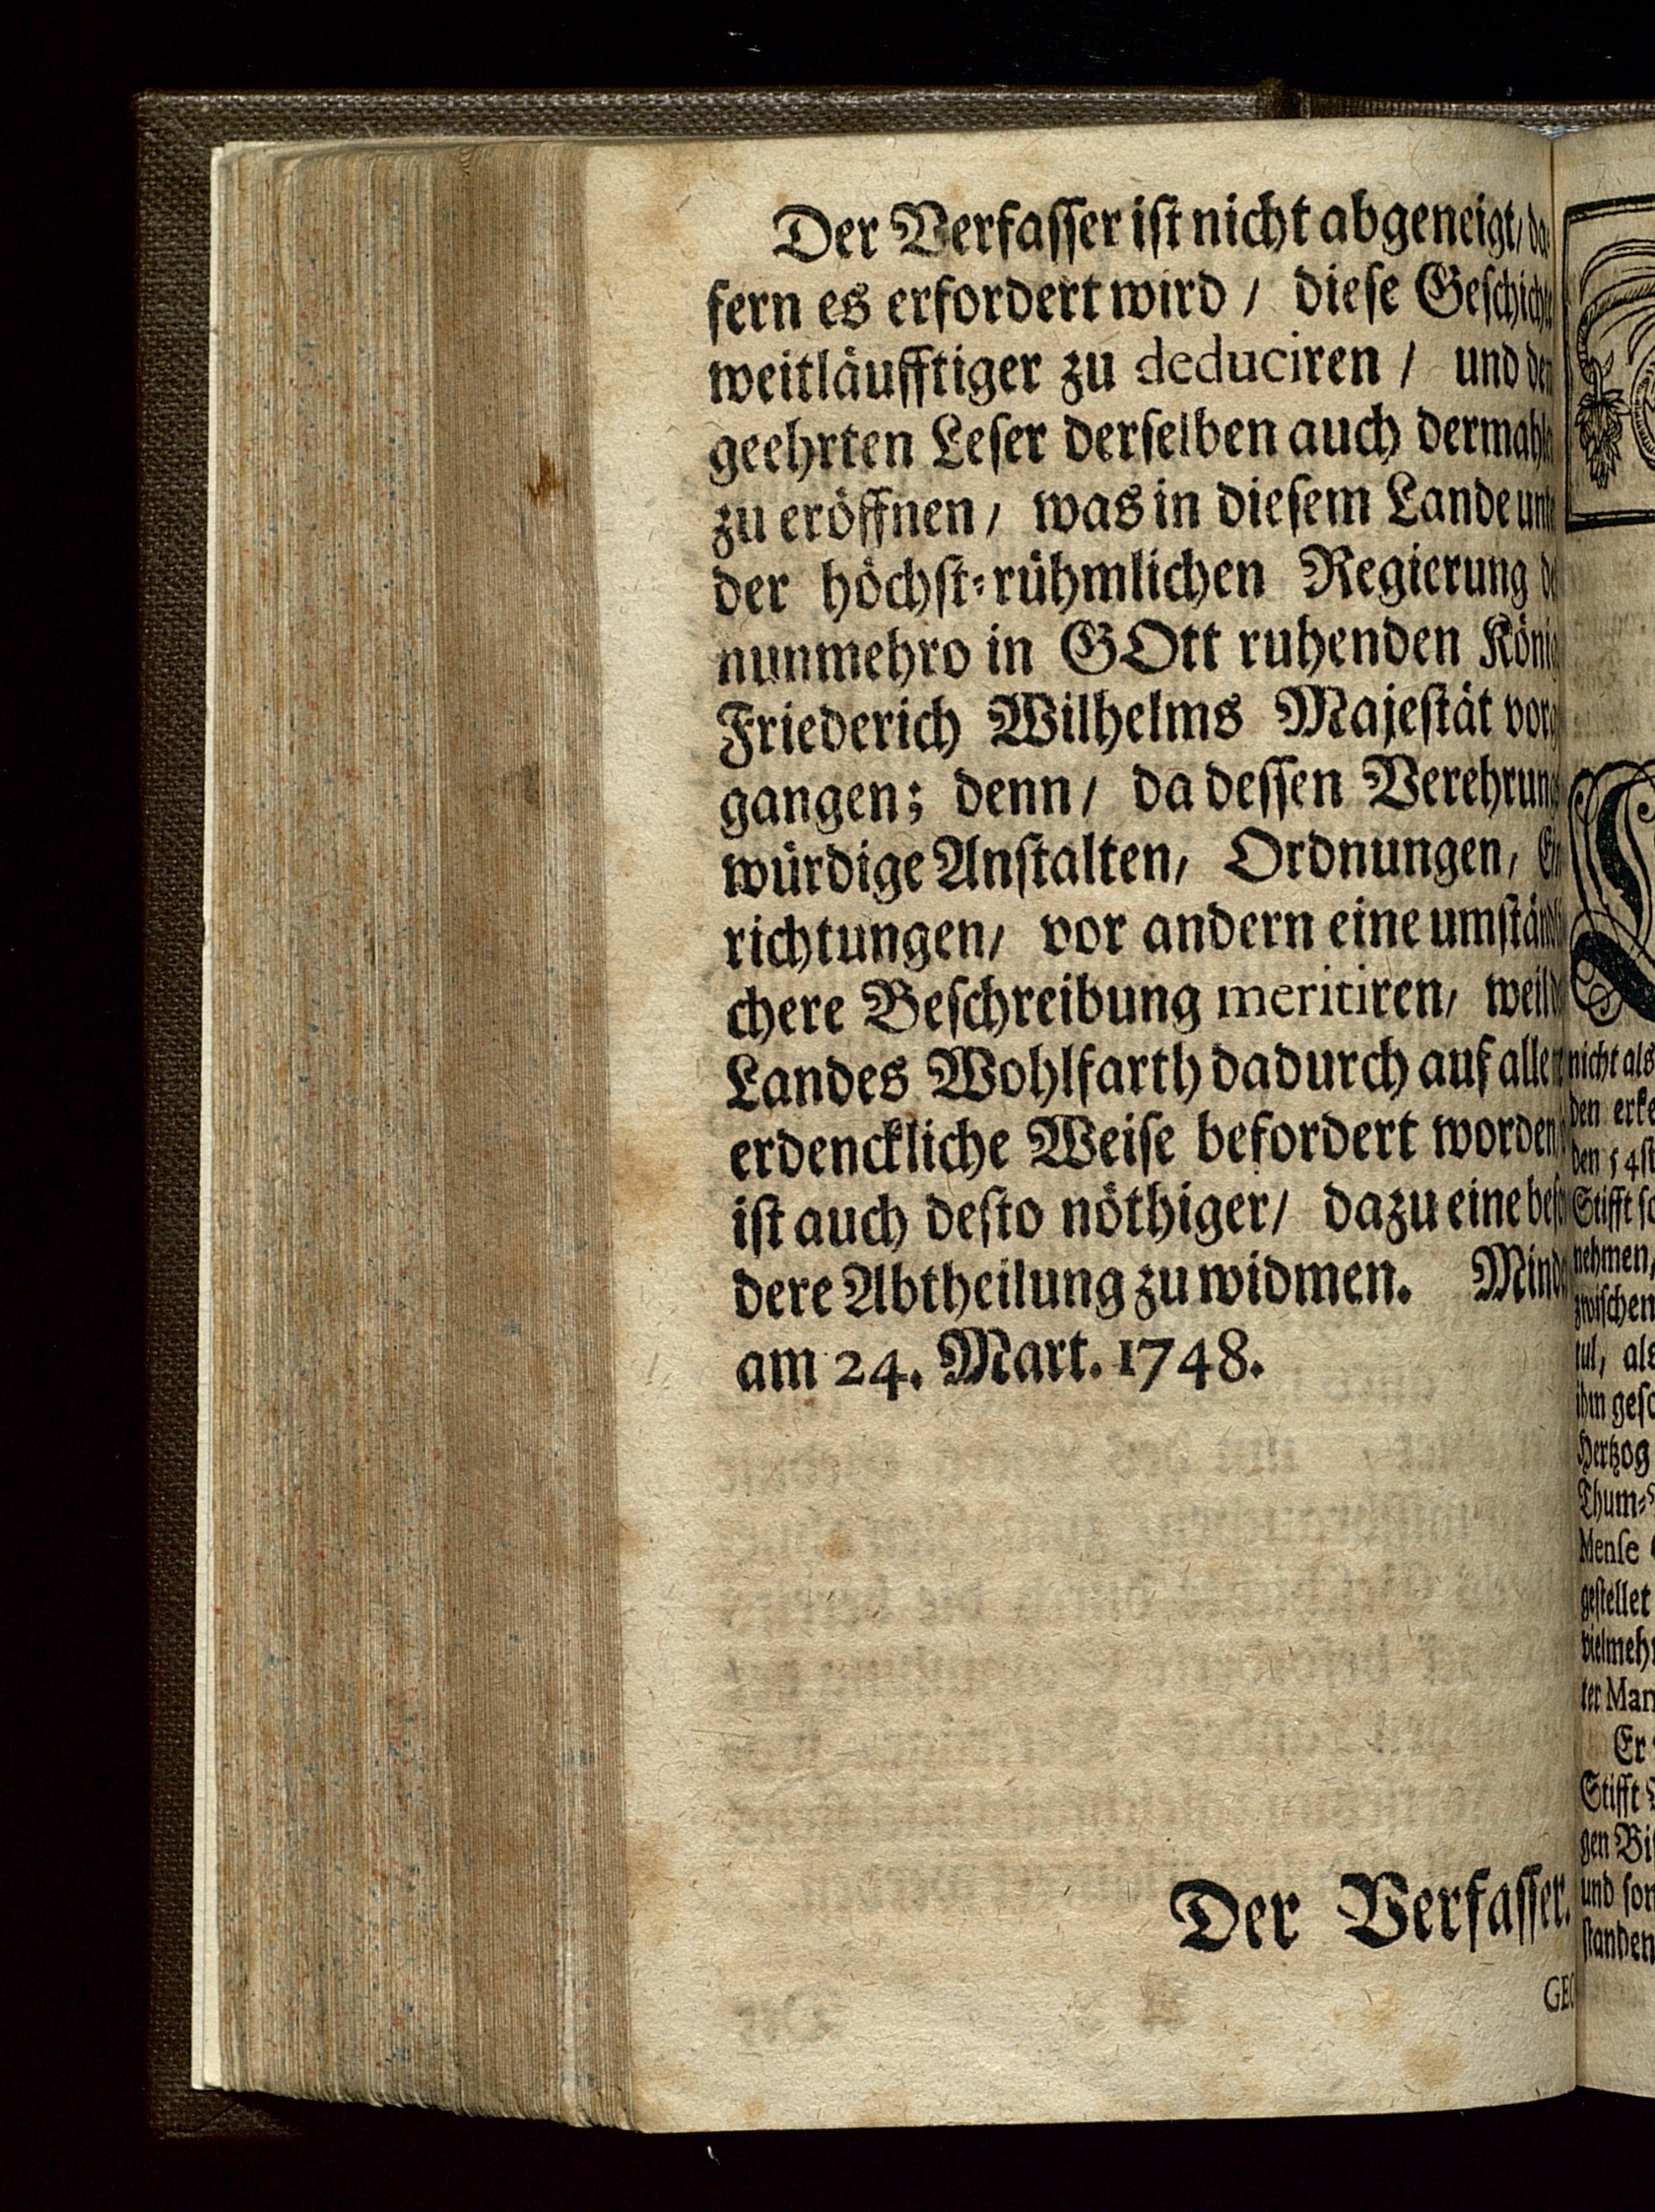 Der Verfasser ist nicht abgeneigt/ da-
fern es erfordert wird / diese Geschichte
weitläufftiger zu deduciren / und den
geehrten Leser derselben auch dermahlen
zu eröffnen/ was in diesem Lande unte
der höchst-rühmlichen Regierung de
nunmehro in GOtt ruhenden König
Friederich Wilhelms Majestät vorg
gangen; denn/ da dessen Verehrung
würdige Anstalten/ Ordnungen/ Ein
richtungen/ vor andern eine umständli
chere Beschreibung meritiren/ weil d
Landes Wohlfarth dadurch auf aller
erdenckliche Weise befordert worden/
ist auch desto nöthiger/ dazu eine beso
dere Abtheilung zu widmen. Minde
am 24. Mart. 1748.
Der Verfasser.
GEO
nicht als
den erke
den 54st
Stifft so
nehmen/
zwischen
tul, als
ihm gesc
Hertzog
Thum-
Mense
gestellet
vielmehr
ter Man
Er
Stifft
gen Bis
und son
standen